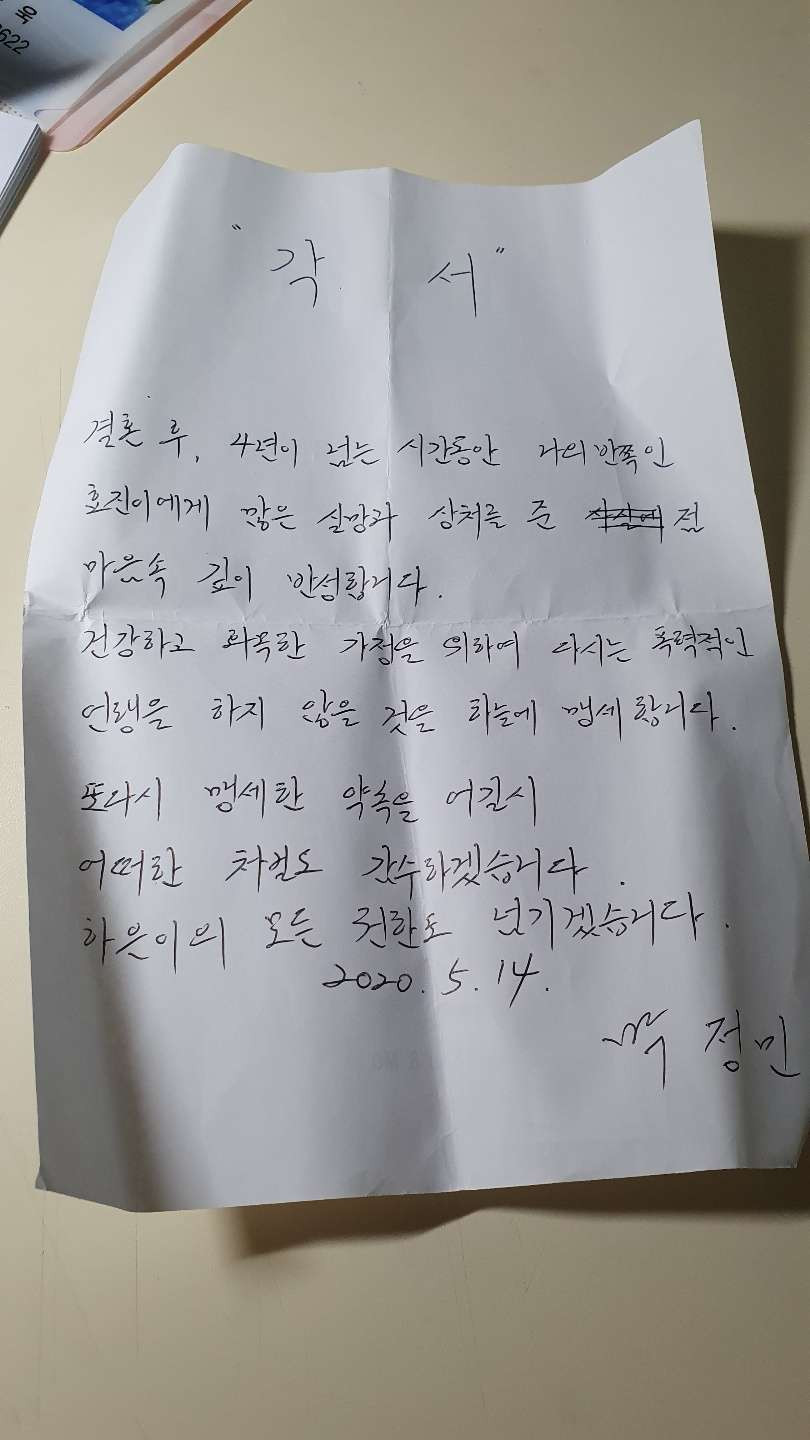 옥
3622
" 각 서 "
결혼 후, 4년이 넘는 시간동안 나의 반쪽인
효진이에게 많은 실망과 상처를 준 점
마음속 깊이 반성합니다.
건강하고 화목한 가정을 위하여 다시는 폭력적인
언행을 하지 않을 것을 하늘에 맹세합니다.
또다시 맹세한 약속을 어길시
어떠한 처벌도 감수하겠습니다.
하은이의 모든 권한도 넘기겠습니다.
2020. 5. 14.
정민